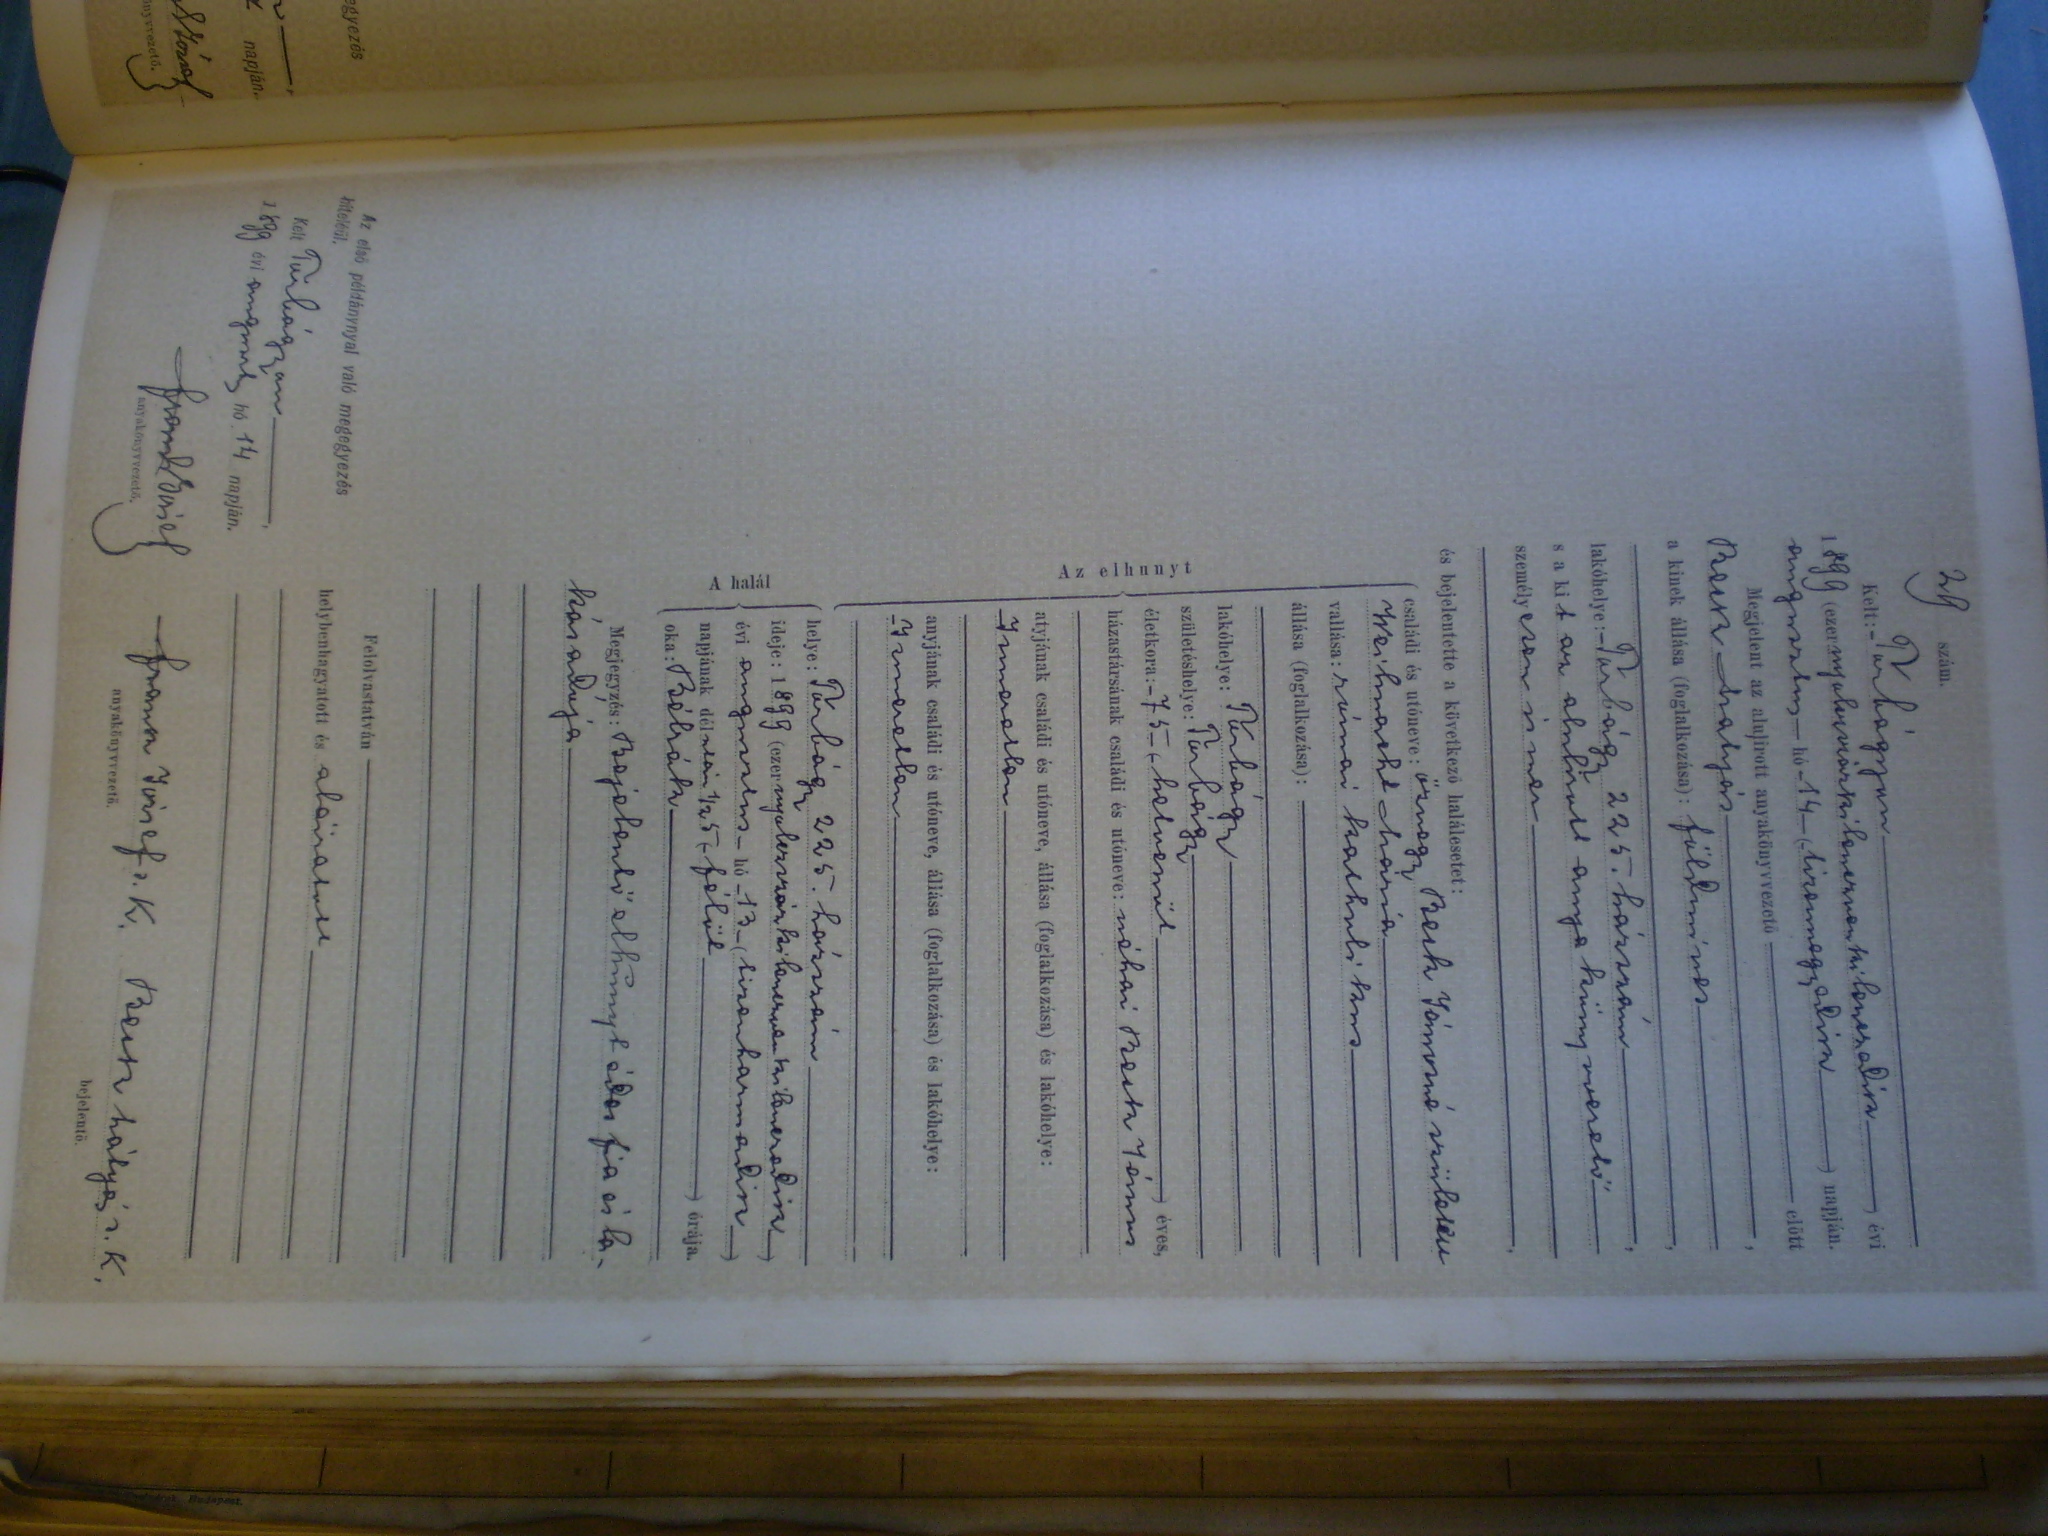 29 szám.
Kelt: Türbágyon
1899 (ezernyolczszázkilenczvenkilenczedik) évi
augusztus hó 14 (tizennegyedik) napján.
Megjelent az alulirott anyakönyvvezető előtt
Beck Mátyás,
a kinek állása (foglalkozása): földmíves,
lakóhelye: 225. házszám,
s a kit az alulirott anyakönyvvezető
személyesen ismer,
és bejelentette a következő halálesetet:
Az elhunyt
családi és utóneve: özvegy Beck Jánosné született
Mária
vallása: római katholikus
állása (foglalkozása):
lakóhelye:
születéshelye:
életkora: 75 (hetvenöt) éves,
házastársának családi és utóneve: néhai Beck János
atyjának családi és utóneve, állása (foglalkozása) és lakóhelye:
Ismeretlen
anyjának családi és utóneve, állása (foglalkozása) és lakóhelye:
Ismeretlen
A halál
helye: 225. házszám
ideje: 1899 (ezernyolczszázkilenczvenkilenczedik)
évi augusztus hó 13 (tizenharmadik)
napjának délután 1/2 5 (fél öt) órája.
oka:
Megjegyzés: Bejelentő elhúnyt édes fia és la-
kásadója
Felolvastatván
helybenhagyatott és aláiratott
Frank József s. K. Beck Mátyás s. K.
anyakönyvvezető. bejelentő.
Az első példánynyal való megegyezés
hiteléül.
Kelt
1899 évi augusztus hó 14 napján.
Frank József
anyakönyvvezető.
egyezés
napján.
Budapest.